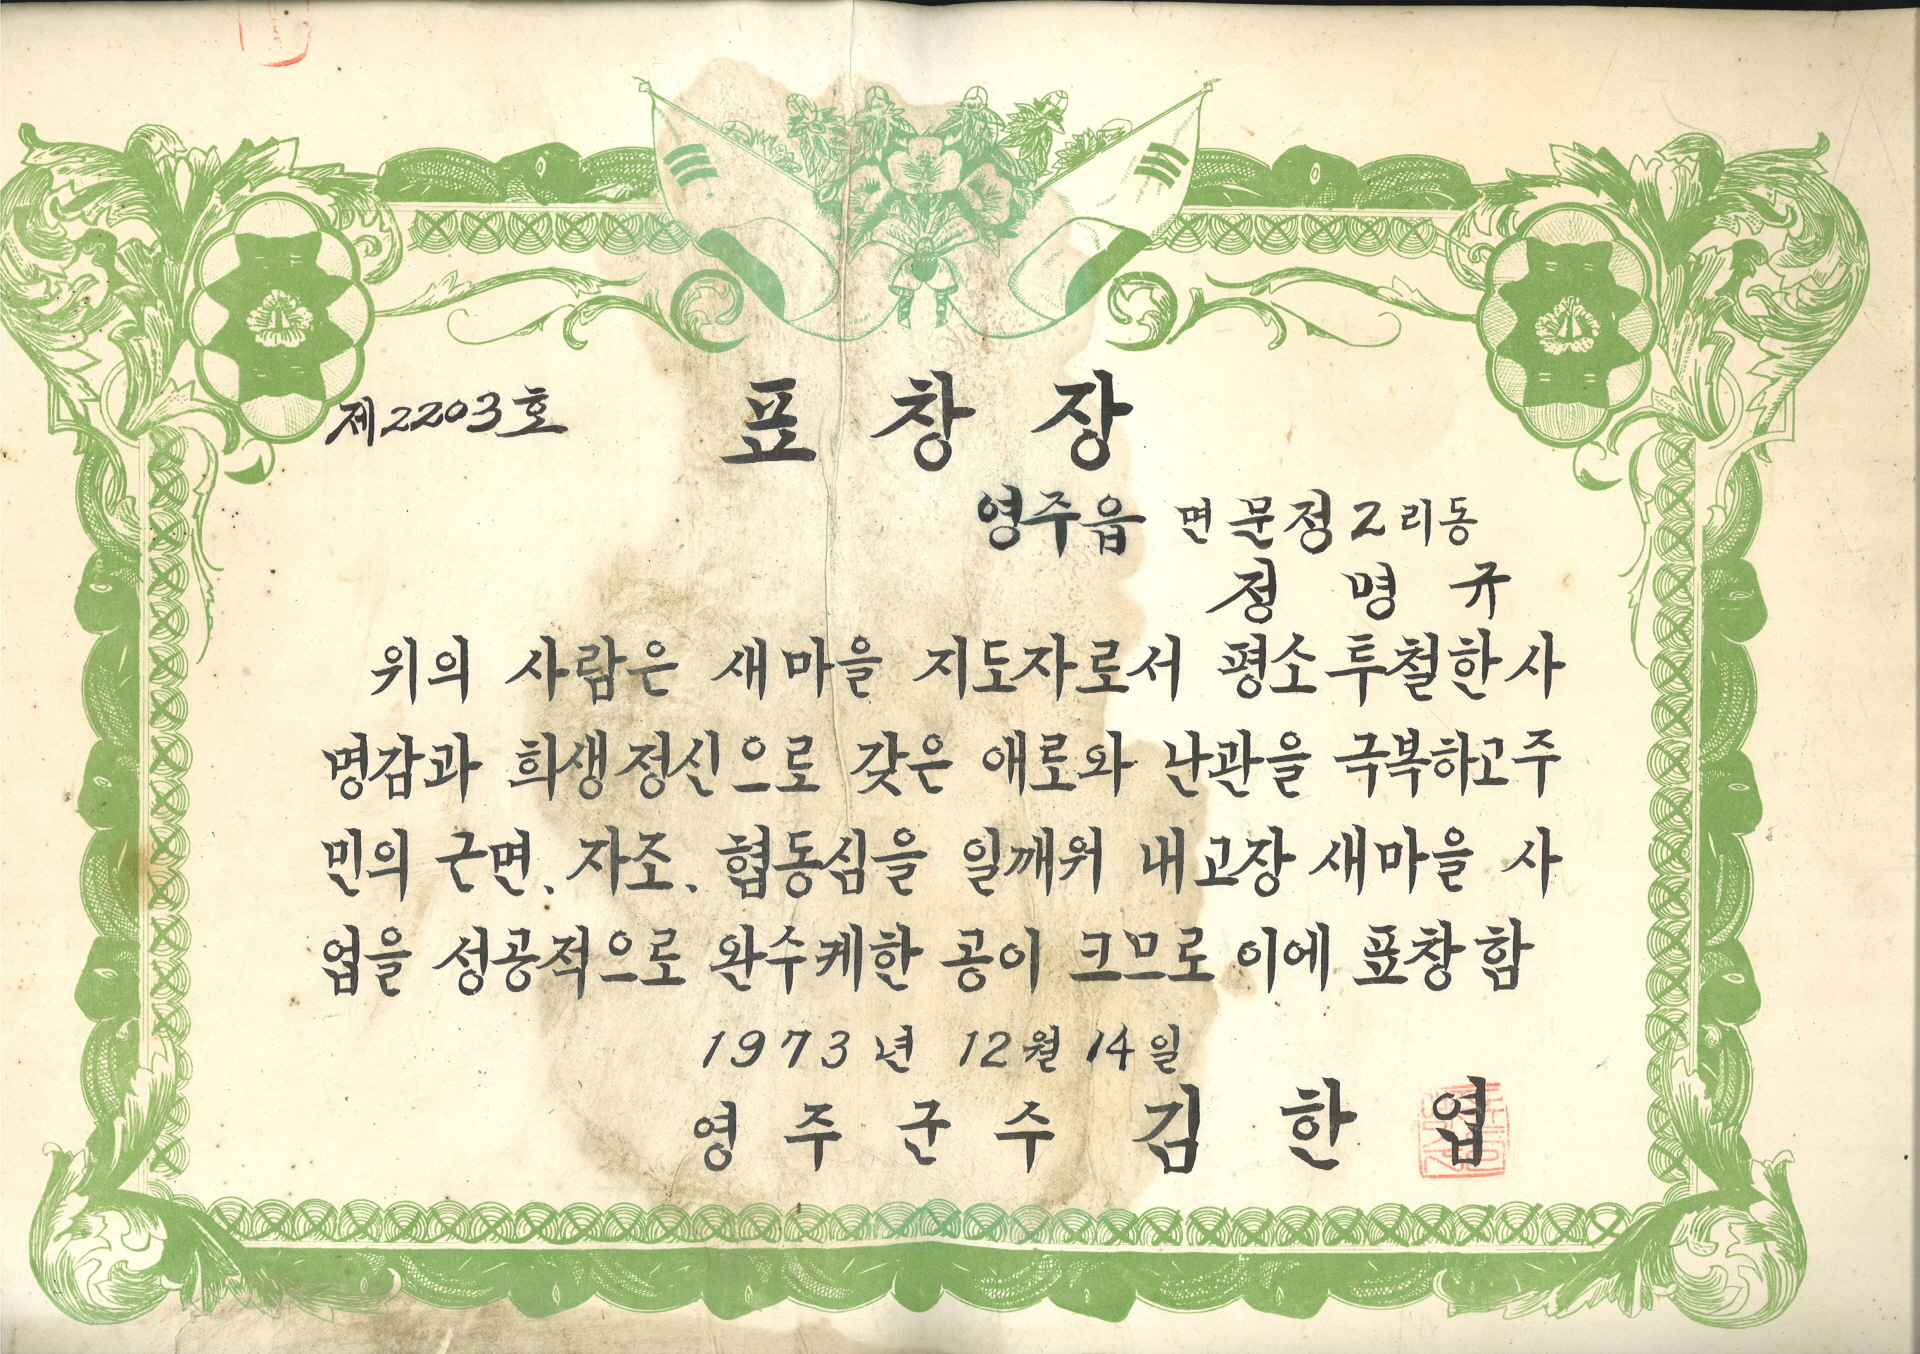 제2203호
표창장
영주읍 면 문정2리동
정명규
위의 사람은 새마을 지도자로서 평소 투철한 사
명감과 희생정신으로 갖은 애로와 난관을 극복하고 주
민의 근면、자조、협동심을 일깨워 내고장 새마을 사
업을 성공적으로 완수케한 공이 크므로 이에 표창함
1973년 12월 14일
영주군수 김한엽